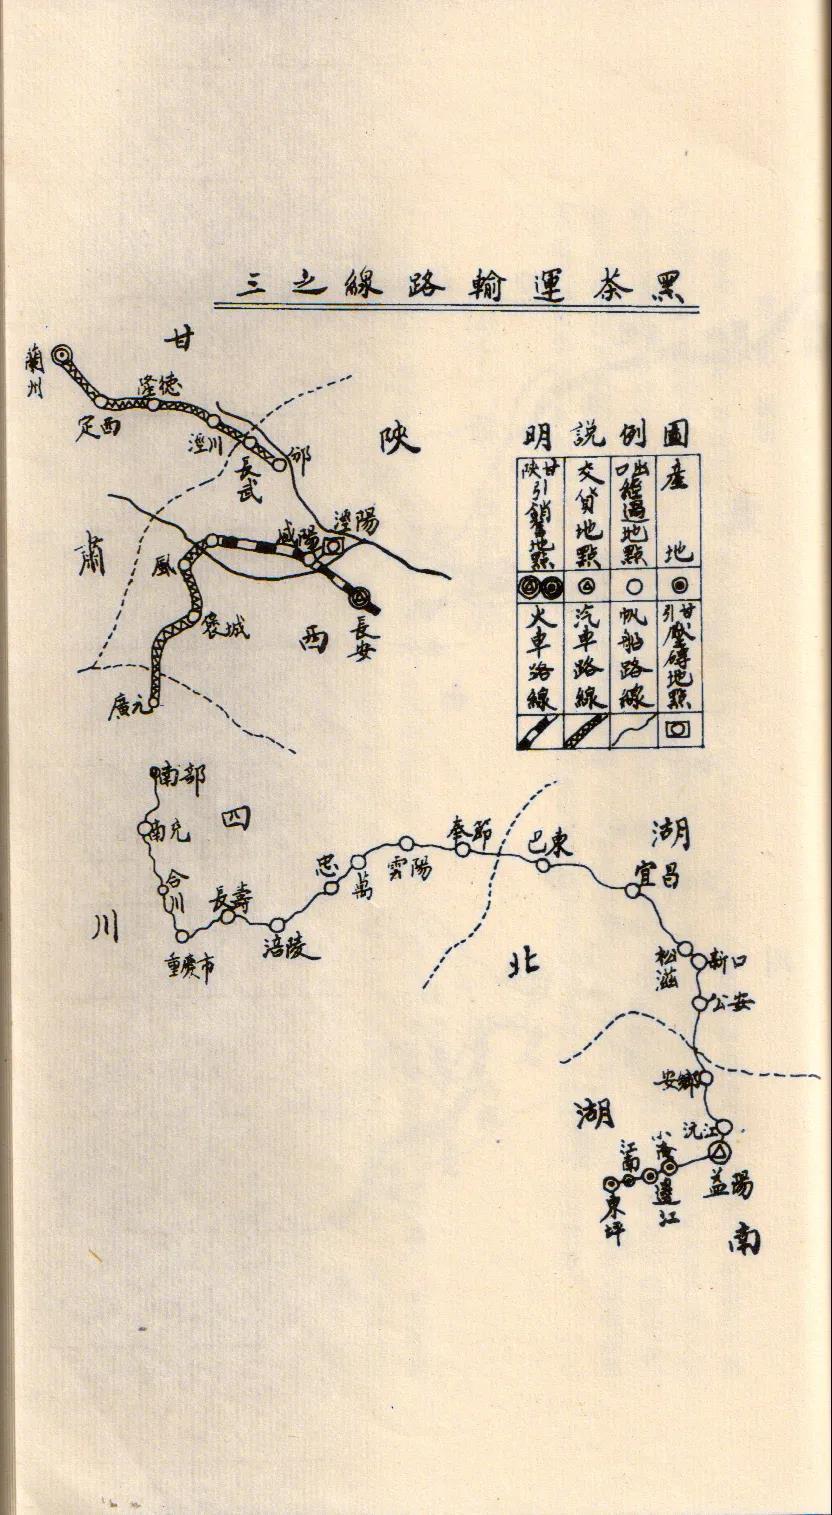 黑茶運輸路線之三
圖例說明
產地
出口經過地點
交貨地點
甘陝引銷售地點
甘引壓磚地點
帆船路線
汽車路線
火車路線
甘
肅
陝
西
蘭州
定西
隆德
涇川
長武
邠
咸陽
涇陽
長安
鳳
褒城
廣元
四
川
南部
南充
合川
重慶市
長壽
涪陵
忠
萬
雲陽
奉節
湖
北
巴東
宜昌
松滋
新口
公安
湖
南
安鄉
沅江
益陽
邊江
小淹
江南
東坪